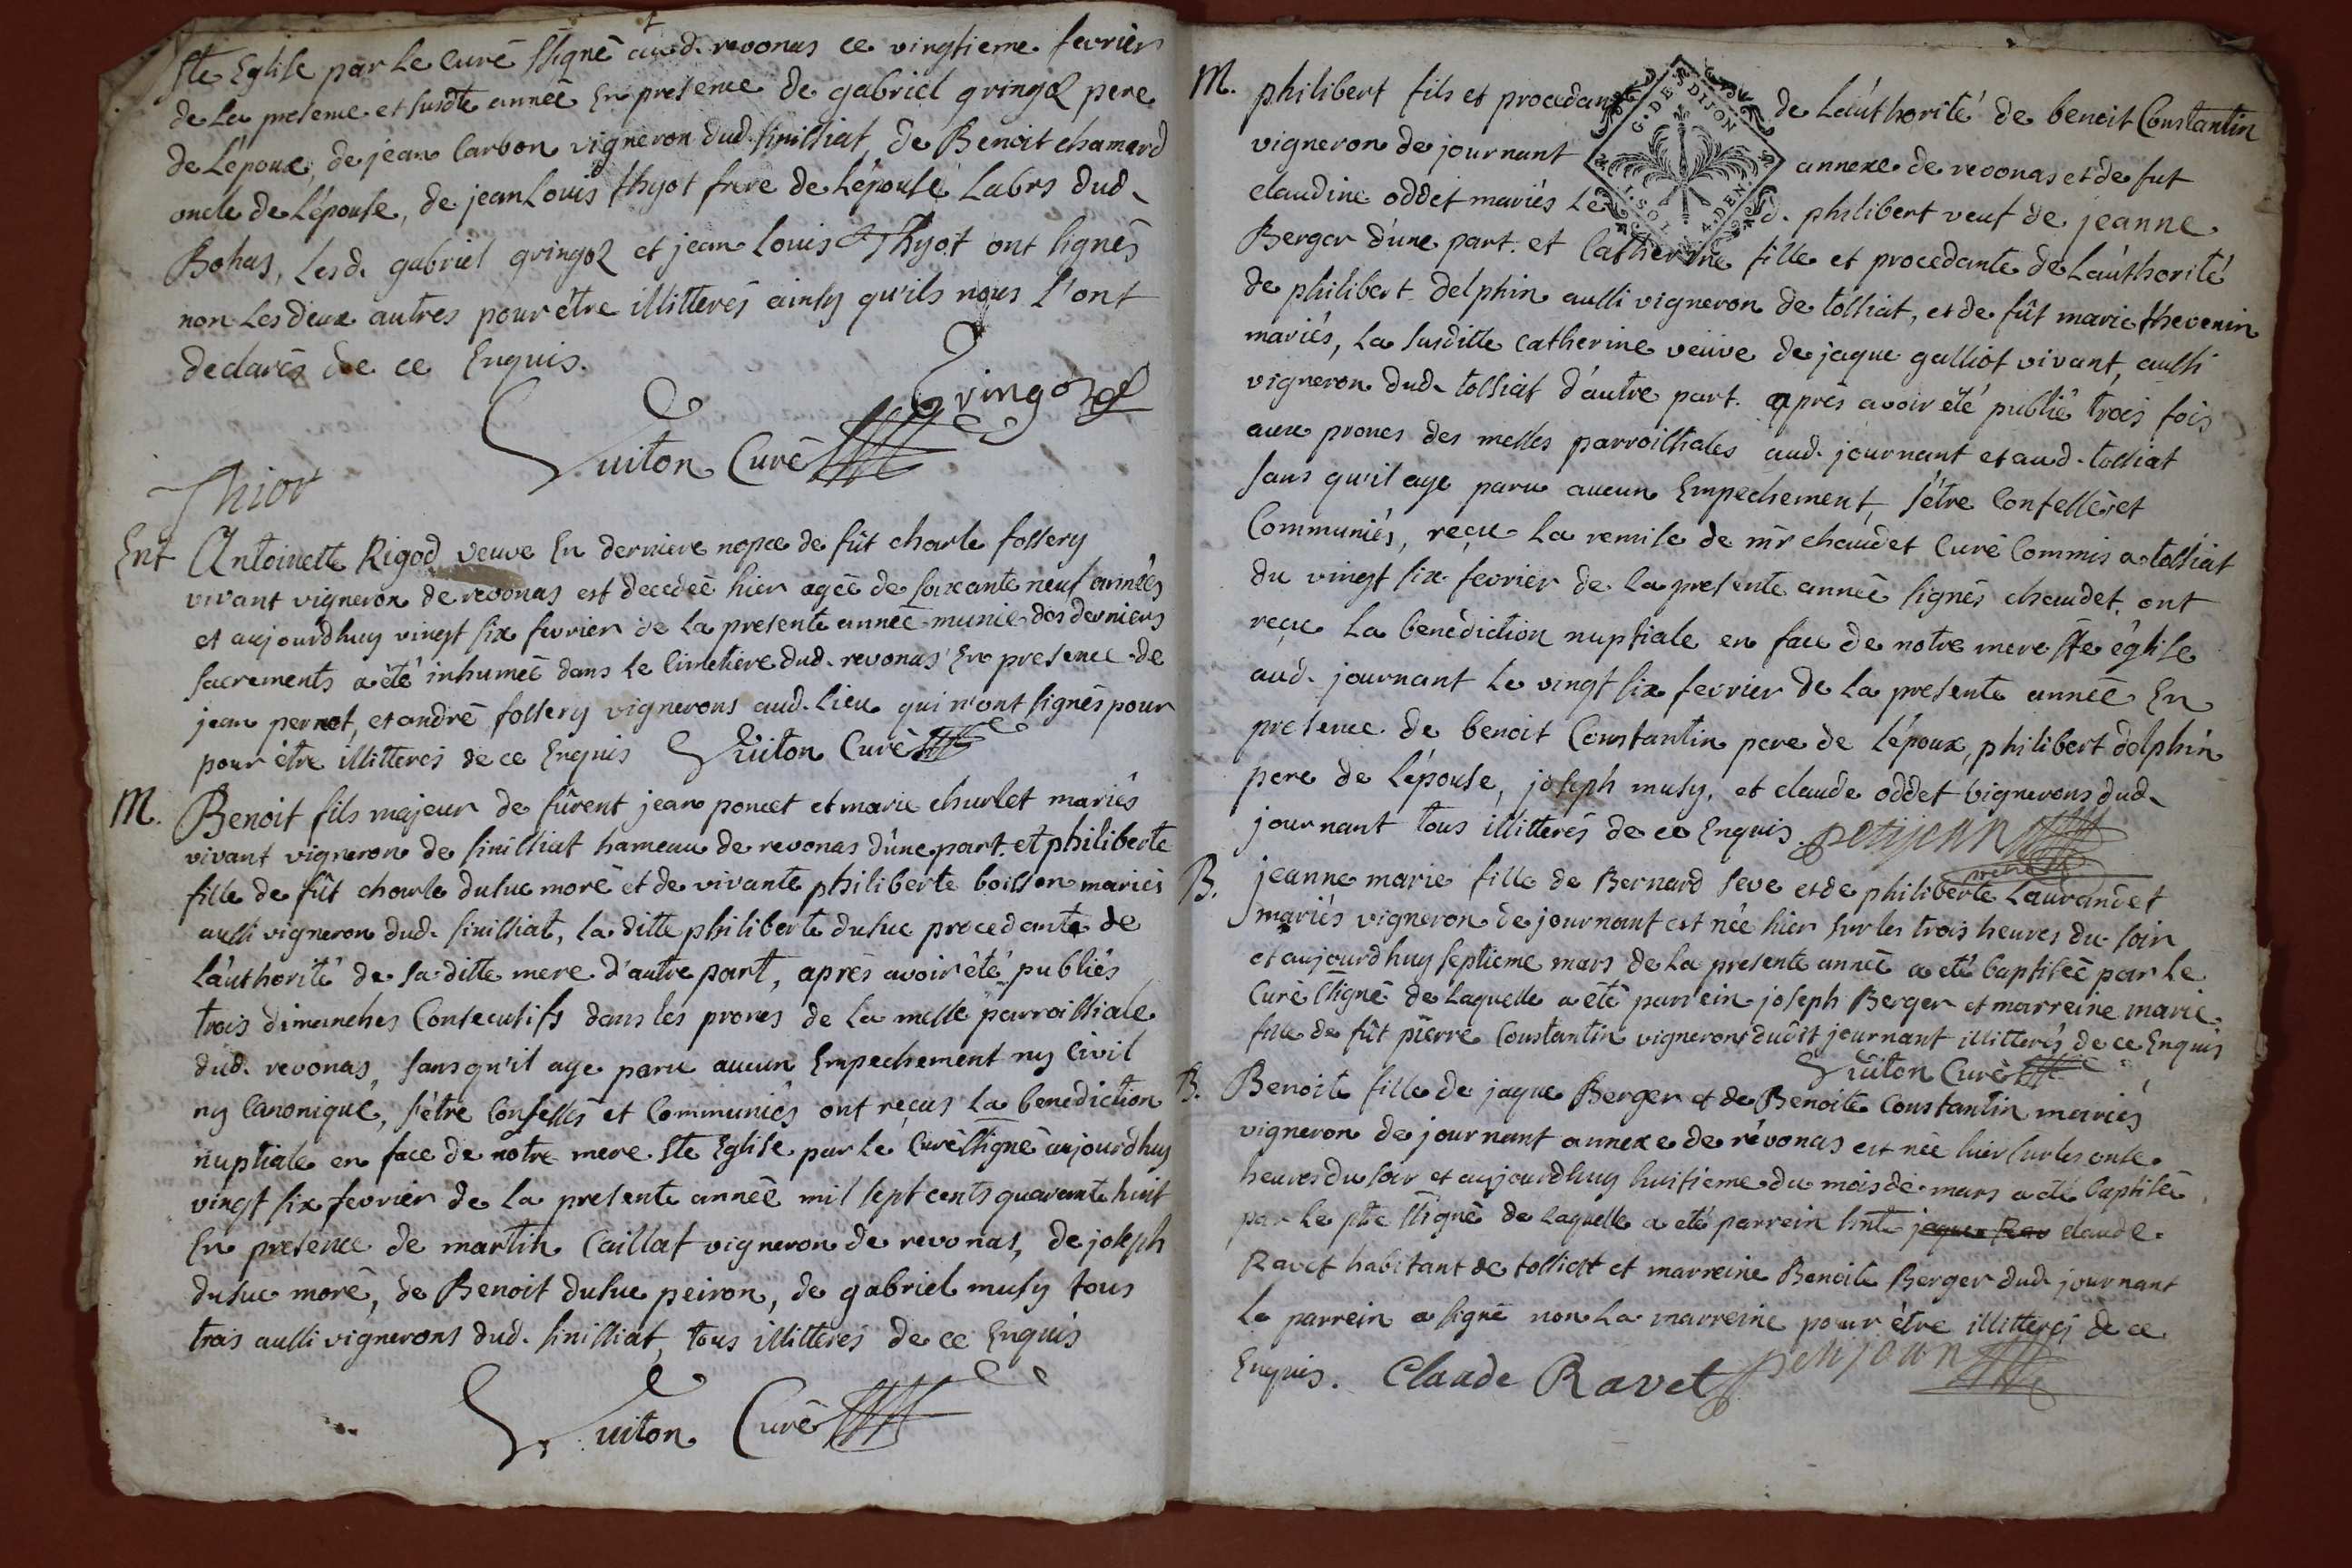 ste Eglise par le curé ssigné aud. revonas ce vingtieme fevrier
de la presence et susdte année En presence de gabriel gringoz pere
de L'époux, de jean Carbon vigneron dud. sinissiat, de Benoit chamard
oncle de L'épouse, de jean Louis thyot frere de L'épouse Labrs dud.
Bohas, Lesd. gabriel gringoz et jean Louis Thyot ont signés
non Les deux autres pour étre illitterés ainsy qu'ils nous l'ont
declarés de ce Enquis.
Gringoz
Guiton Curé
Thiot
Ent Antoinette Rigod veuve En derniere nopce de fût charle fossery
vivant vigneron de revonas est decedeé hier ageé de soixante neuf anneés
et aujourdhuy vingt six fevrier de la presente anneé munie des derniers
sacrements a été inhumeé dans le cimetiere dud. revonas En presence de
jean pernet, et andré fossery vignerons aud. Lieu qui n'ont signés pour
pour étre illitterés de ce Enquis Guiton Curé
M. Benoit fils majeur de fûrent jean poncet et marie churlet mariés
vivant vigneron de sinissiat hameau de revonas d'une part. et philiberte
fille de fût charle dusuc moré et de vivante philiberte boisson mariés
aussi vigneron dud. sinissiat, la ditte philiberte dusuc procedante de
L'authorité de sa ditte mere d'autre part, aprés avoir été publiés
trois dimanches Consecutifs dans les prones de la messe parroissiale
dud. revonas, sans qu'il aye paru aucun Empechement ny Civil
ny Canonique, s'étre Confessés et Communiés ont reçus la benediction
nuptiale en face de notre mere Ste Eglise par le Curé ssigné aujourdhuy
vingt six fevrier de la presente anneé mil sept cents quarante huit
En presence de martin Caillat vigneron de revonas, de joseph
dusuc moré, de Benoit dusuc peiron, de gabriel musy tous
trois aussi vignerons dud. sinissiat, tous illitterés de ce Enquis
Guiton Curé
M. philibert fils et procedant de L'authorité de benoit Constantin
vigneron de journant annexe de revonas et de fut
claudine oddet mariés Le d. philibert veuf de jeanne
Berger d'une part. et Catherine fille et procedante de L'authorité
de philibert delphin aussi vigneron de tossiat, et de fût marie thevenin
mariés, la susditte catherine veuve de jaque galliot vivant, aussi
vigneron dud. tossiat d'autre part. aprés avoir été publié trois fois
aux prones des messes parroissiales aud. journant et aud. tossiat
sans qu'il aye paru aucun Empechement, s'étre Confessés et
Communiés, reçu La remise de mr chaudet Curé Commis a tossiat
du vingt six fevrier de la presente anneé signés chaudet, ont
reçu la benediction nuptiale en face de notre mere Ste église
aud. journant le vingt six fevrier de La presente anneé En
presence de benoit Constantin pere de L'époux, philibert delphin
pere de L'épouse, joseph musy, et claude oddet vignerons dud.
journant tous illitterés de ce Enquis. petijean
B. jeanne marie fille de Bernard seve et de philiberte Laurandet
mariés vigneron de journant est née hier sur les trois heures du soir
et aujourdhuy septieme mars de la presente anneé a eté baptiseé par Le
Curé ssigné de Laquelle a été parrein joseph Berger et marreine marie
fille de fût pierre Constantin vignerons dudit journant illitterés de ce Enquis
Guiton Curé
B. Benoite fille de jaque Berger et de Benoite Constantin mariés
vigneron de journant annexe de révonas est née hier sur les onse
heures du soir et aujourdhuy huitieme du mois de mars a été baptiseé
par le ptre ssigné de laquelle a eté parrein claude
Ravet habitant de tossiat et marreine Benoite Berger dud. journant
Le parrein a signé non la marreine pour étre illitterés de ce
Enquis. Claude Ravet petijean
G. DES DIJON